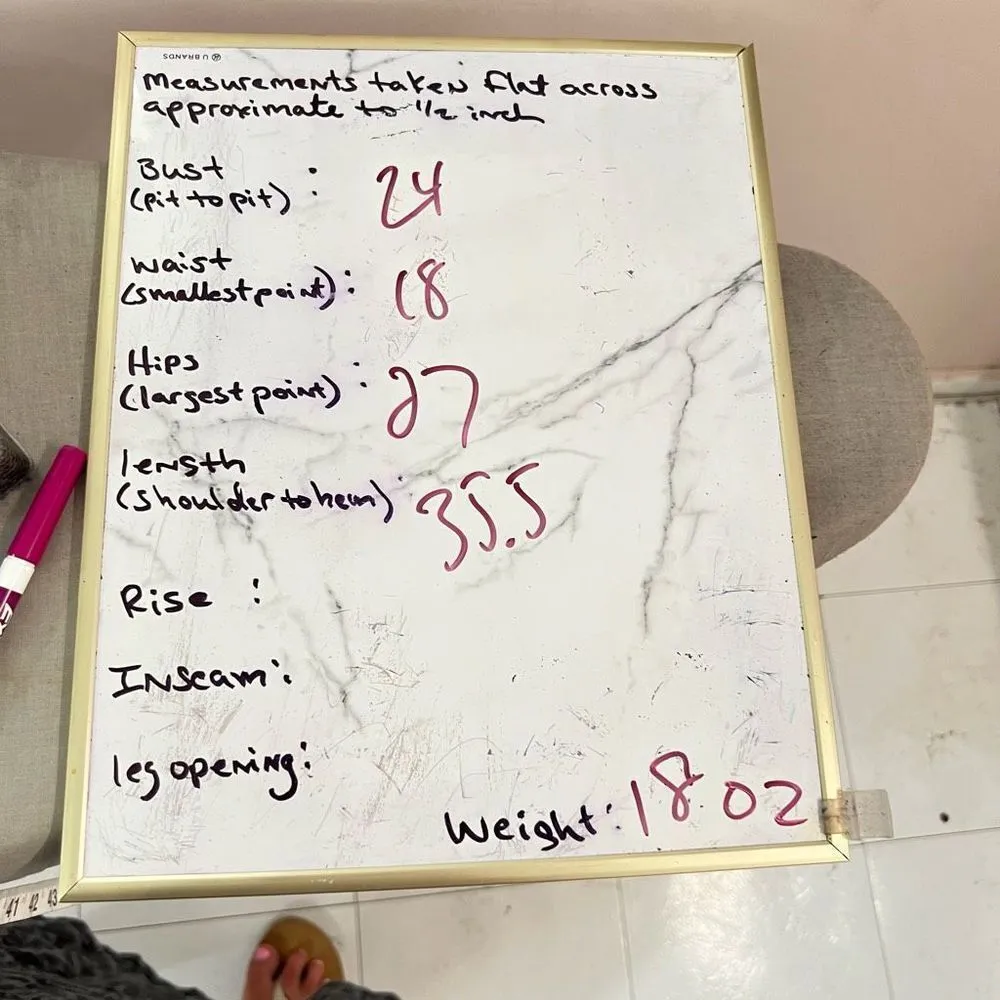 U BRANDS
Measurements taken flat across
approximate to 1/2 inch
Bust
(pit to pit) : 24
Waist
(smallest point) : 18
Hips
(largest point) : 27
length
(shoulder to hem) : 35.5
Rise :
Inseam :
leg opening :
Weight : 18 oz
41 42 43